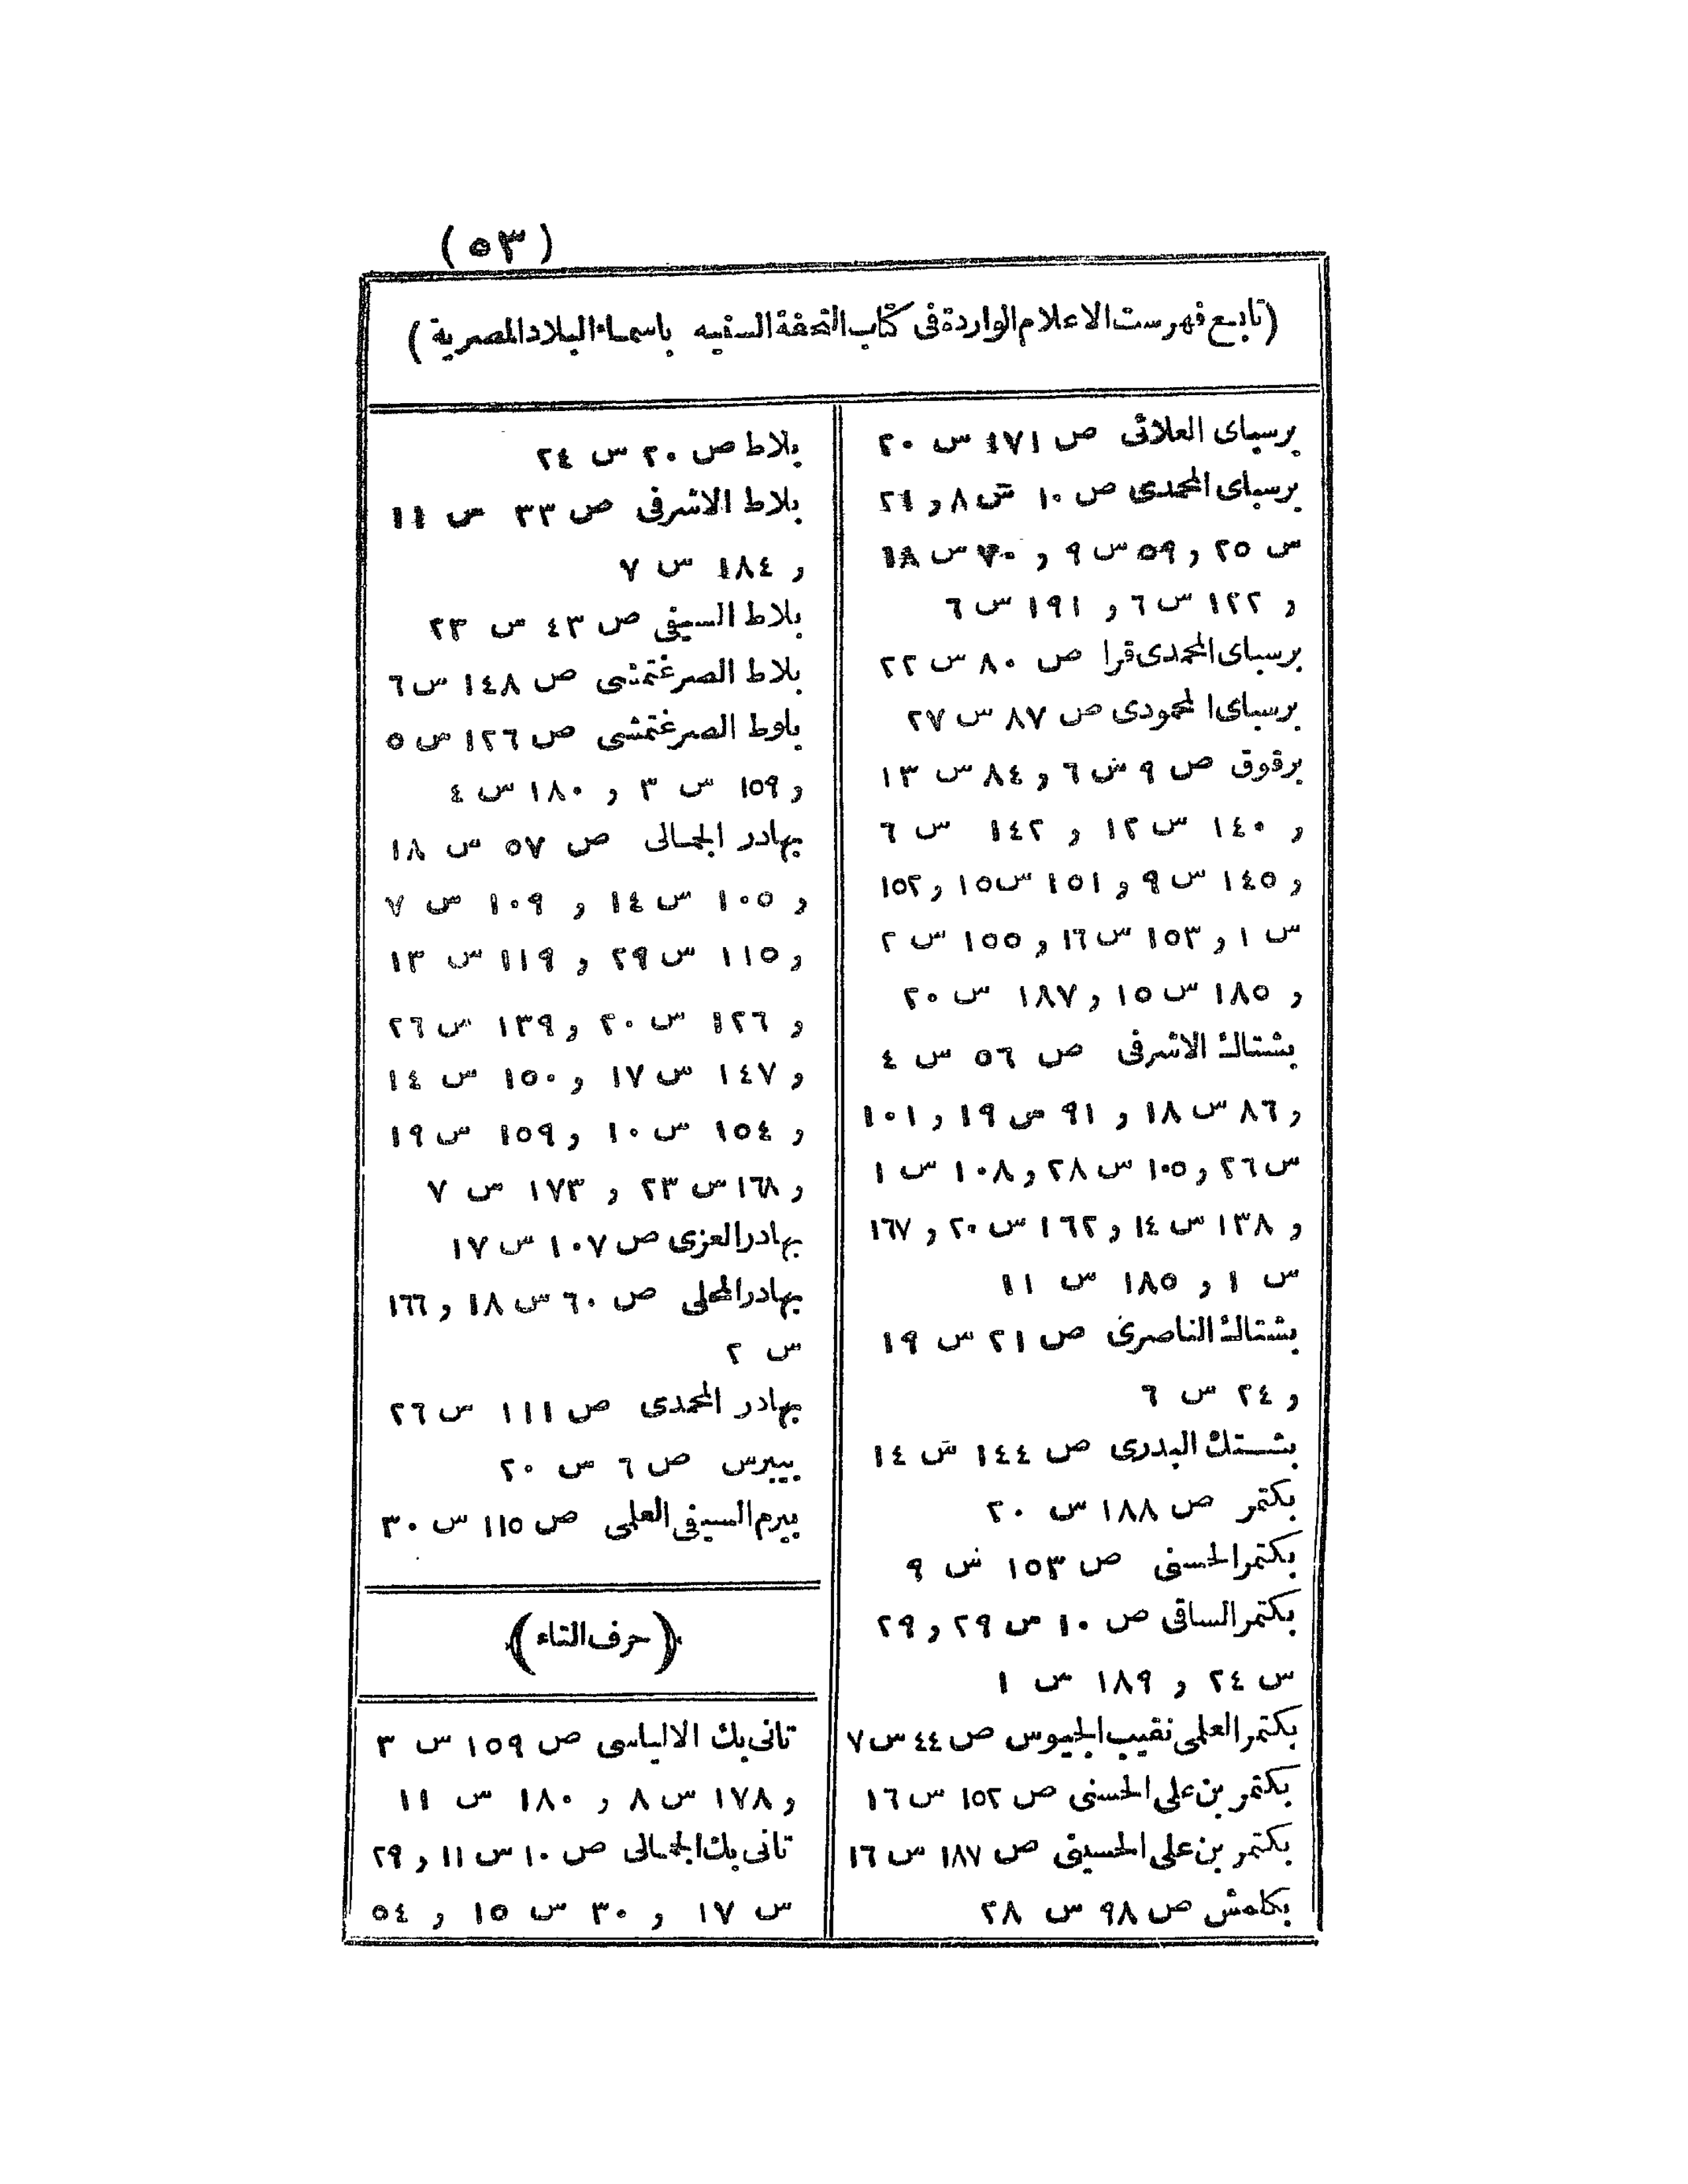 (٥٣)
(تابع فهرست الاعلام الواردة فى كتاب التحفة السنيه باسماء البلاد المصرية)
برسباى العلائى ص ١٧١ س ٢٠
برسباى المحمدى ص ١٠ س ٨ و ٢٦
س ٢٥ و ٥٩ س ٩ و ٧٠ س ١٨
و ١٢٢ س ٦ و ١٩١ س ٦
برسباى المحمدى قرا ص ٨٠ س ٢٢
برسباى المحمودى ص ٨٧ س ٢٧
برقوق ص ٩ س ٦ و ٨٤ س ١٣
و ١٤٠ س ١٢ و ١٤٢ س ٦
و ١٤٥ س ٩ و ١٥١ س ١٥ و ١٥٢
س ١ و ١٥٣ س ١٦ و ١٥٥ س ٢
و ١٨٥ س ١٥ و ١٨٧ س ٢٠
بشتاك الاشرفى ص ٥٦ س ٤
و ٨٦ س ١٨ و ٩١ س ١٩ و ١٠١
س ٢٦ و ١٠٥ س ٢٨ و ١٠٨ س ١
و ١٣٨ س ١٤ و ١٦٢ س ٢٠ و ١٦٧
س ١ و ١٨٥ س ١١
بشتاك الناصرى ص ٢١ س ١٩
و ٢٤ س ٦
بشتك البدرى ص ١٤٤ س ١٤
بكتمر ص ١٨٨ س ٢٠
بكتمر الحسنى ص ١٥٣ س ٩
بكتمر الساقى ص ١٠ س ٢٩ و ٢٩
س ٢٤ و ١٨٩ س ١
بكتمر العلمى نقيب الجيوس ص ٤٤ س ٧
بكتمر بن على الحسنى ص ١٥٢ س ١٦
بكتمر بن على الحسينى ص ١٨٧ س ١٦
بكلمش ص ٩٨ س ٢٨
بلاط ص ٢٠ س ٢٤
بلاط الاشرفى ص ٣٣ س ١١
و ١٨٤ س ٧
بلاط السيفى ص ٤٣ س ٢٣
بلاط الصرغتمشى ص ١٤٨ س ٦
باوط الصرغتمشى ص ١٢٦ س ٥
و ١٥٩ س ٣ و ١٨٠ س ٤
بهادر الجمالى ص ٥٧ س ١٨
و ١٠٥ س ١٤ و ١٠٩ س ٧
و ١١٥ س ٢٩ و ١١٩ س ١٣
و ١٢٦ س ٢٠ و ١٣٩ س ٢٦
و ١٤٧ س ١٧ و ١٥٠ س ١٤
و ١٥٤ س ١٠ و ١٥٩ س ١٩
و ١٦٨ س ٢٣ و ١٧٣ س ٧
بهادر العزى ص ١٠٧ س ١٧
بهادر المحلى ص ٦٠ س ١٨ و ١٦٦
س ٢
بهادر المحمدى ص ١١١ س ٢٦
بيبرس ص ٦ س ٢٠
بيرم السيفى العلمى ص ١١٥ س ٣٠
(حرف التاء)
تانى بك الالياسى ص ١٥٩ س ٣
و ١٧٨ س ٨ و ١٨٠ س ١١
تانى بك الجمالى ص ١٠ س ١١ و ٢٩
س ١٧ و ٣٠ س ١٥ و ٥٤